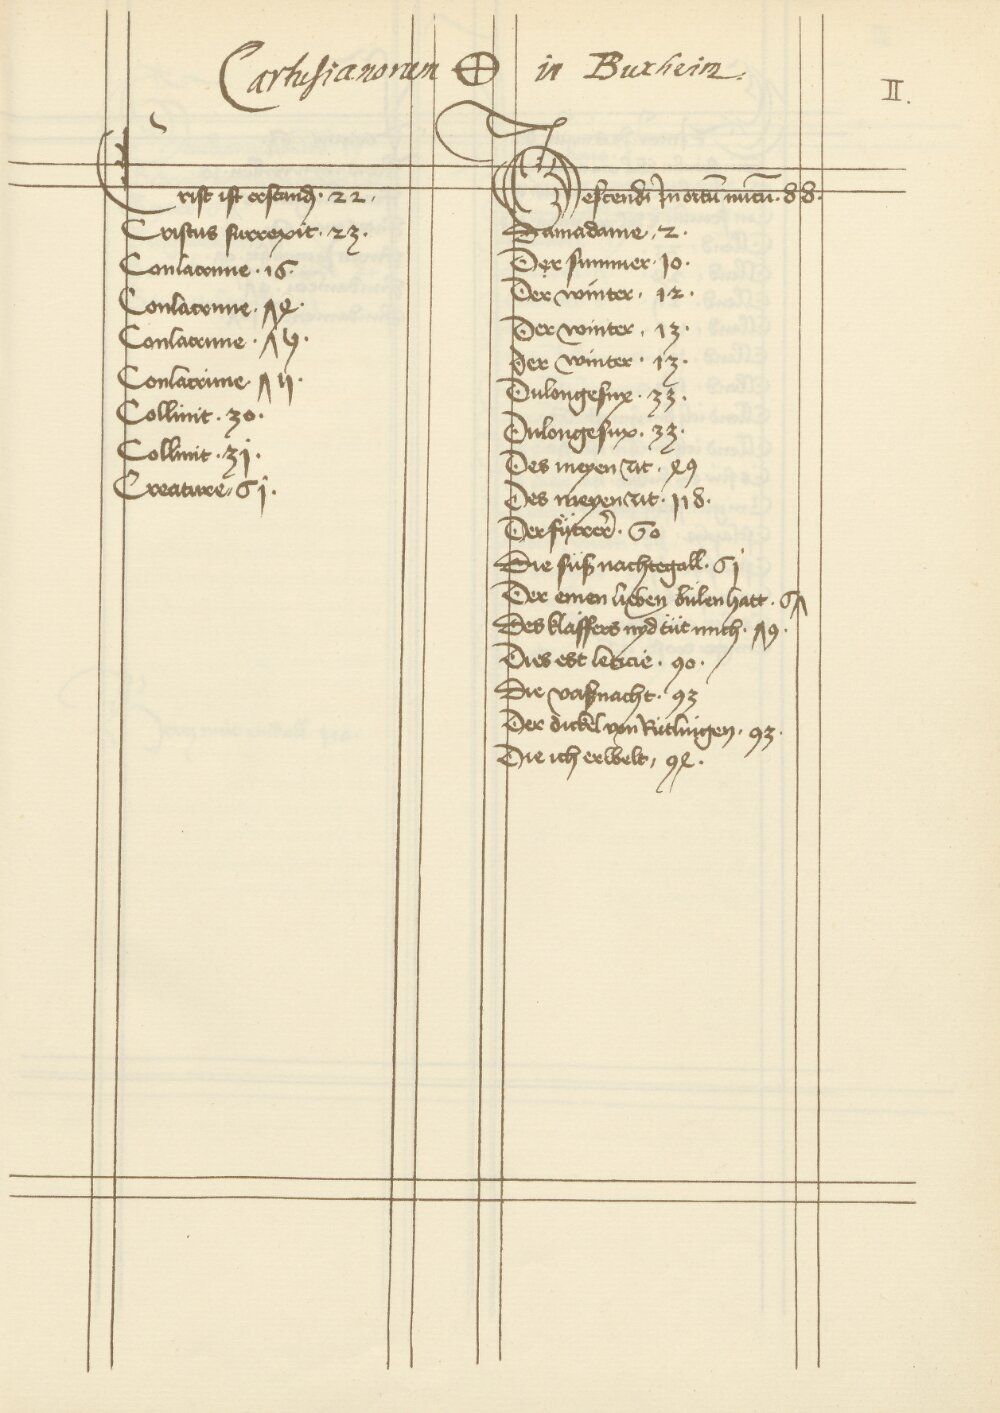 Cartusianorum ⊕ in Buxheim.
II.
Crist ist erstandē. 22.
Cristus surrexit. 23.
Conlacrime. 16.
Conlacrime. 74.
Conlacrime. 75.
Conlacrime 711.
Collinit. 30.
Collinit. 31.
Creature, 61.
Descendi in ortū nucū. 88.
Damadame, 2.
Der summer. 10.
Der winter. 12.
Der winter, 13.
der winter. 13.
Dulongesux. 33.
Dulongesux. 33.
Des meyen zit. 49
Des meyen zit. 118.
Der fütrer. 60
Die süß nachtegall. 61
Der einen lieben bülen hatt. 67
Des klaffers nyd tüt mich. 79.
Dies est leticie. 90.
Die vasnacht. 93
Der dickel von Rütlingen. 93.
Die ich erwelt, 94.